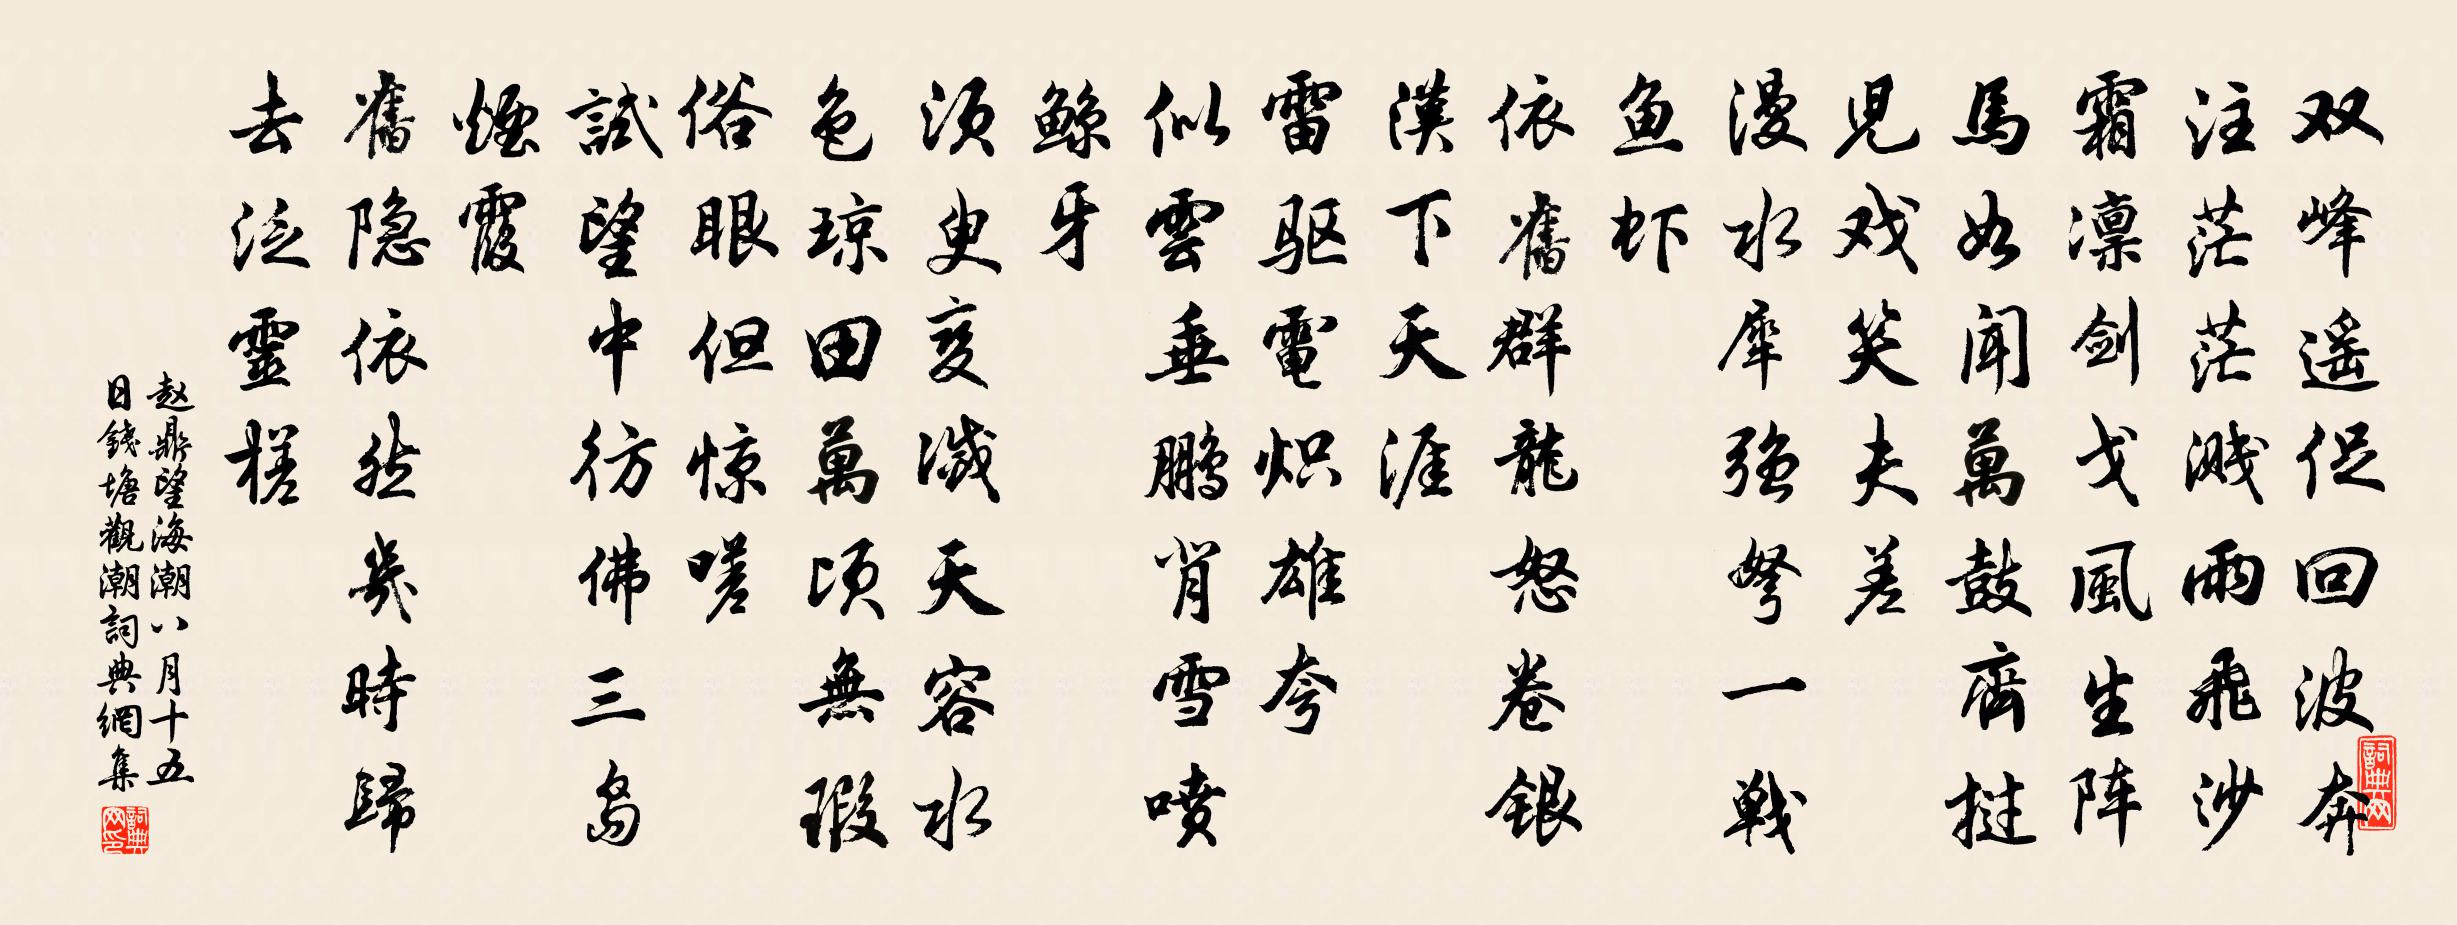 双峰遥促回波奔
注茫茫溅雨飛沙
霜凛剑戈風生阵
馬如闻萬鼓齊挞
児戏笑夫差
漫水犀强弩一戦
鱼虾
依舊群龍怒卷銀
漢下天涯
雷驱電炽雄夸
似雲垂鹏背雪喷
鲸牙
须臾变滅天容水
色琼田萬顷無瑕
俗眼但惊嗟
試望中彷佛三岛
煙霞
舊隐依然幾時歸
去泛靈槎
赵鼎望海潮八月十五
日錢塘觀潮詞典網集
詞典网
詞典网印